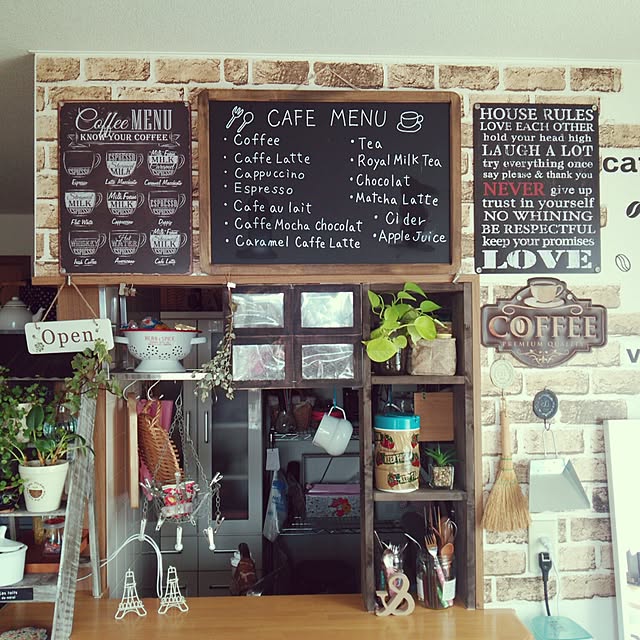 Coffee MENU
KNOW YOUR COFFEE
ESPRESSO
MILK
Espresso
Latte Macchiato
Caramel Macchiato
MILK
Milk Foam
MILK
ESPRESSO
Flat White
Cappuccino
Doppio
WHISKEY
HOT WATER
MILK
Irish Coffee
Americano
Cafe Latte
CAFE MENU
• Coffee
• Caffe Latte
• Cappuccino
• Espresso
• Cafe au lait
• Caffe Mocha chocolat
• Caramel Caffe Latte
• Tea
• Royal Milk Tea
• Chocolat
• Matcha Latte
• Cider
• Apple Juice
HOUSE RULES
LOVE EACH OTHER
hold your head high
LAUGH A LOT
try everything once
say please & thank you
NEVER give up
trust in yourself
NO WHINING
BE RESPECTFUL
keep your promises
LOVE
COFFEE
PREMIUM QUALITY
Open
&